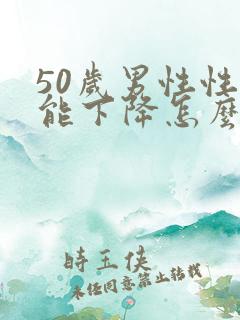 50歲男性性
能下降怎麼
時玉俠
未经同意禁止转载